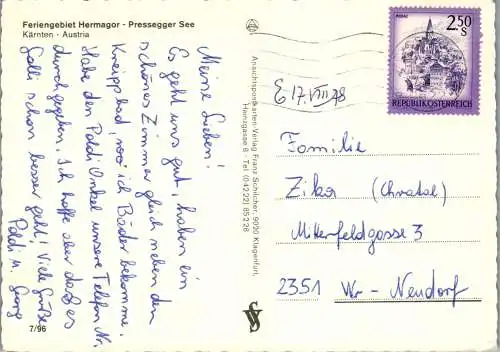 Feriengebiet Hermagor - Pressegger See
Kärnten - Austria
Meine Lieben!
Es geht uns gut, haben ein
schönes Zimmer gleich neben dem
Kneippbad, wo ich Bäder bekomme.
Habe den Poldi Onkel unsere Telefon Nr.
durchgegeben. Ich hoffe aber daß es
Galli schon besser geht! Viele Grüße
Poldi u. Georg
7/96
Ansichtspostkarten-Verlag Franz Schilcher, 9020 Klagenfurt,
Heinzgasse 6 - Tel. (04222) 85226
E 17.VIII 78
2.50
S
REPUBLIK ÖSTERREICH
Familie
Zika (Chvatal)
Mitterfeldgasse 3
2351 Wr-Neudorf